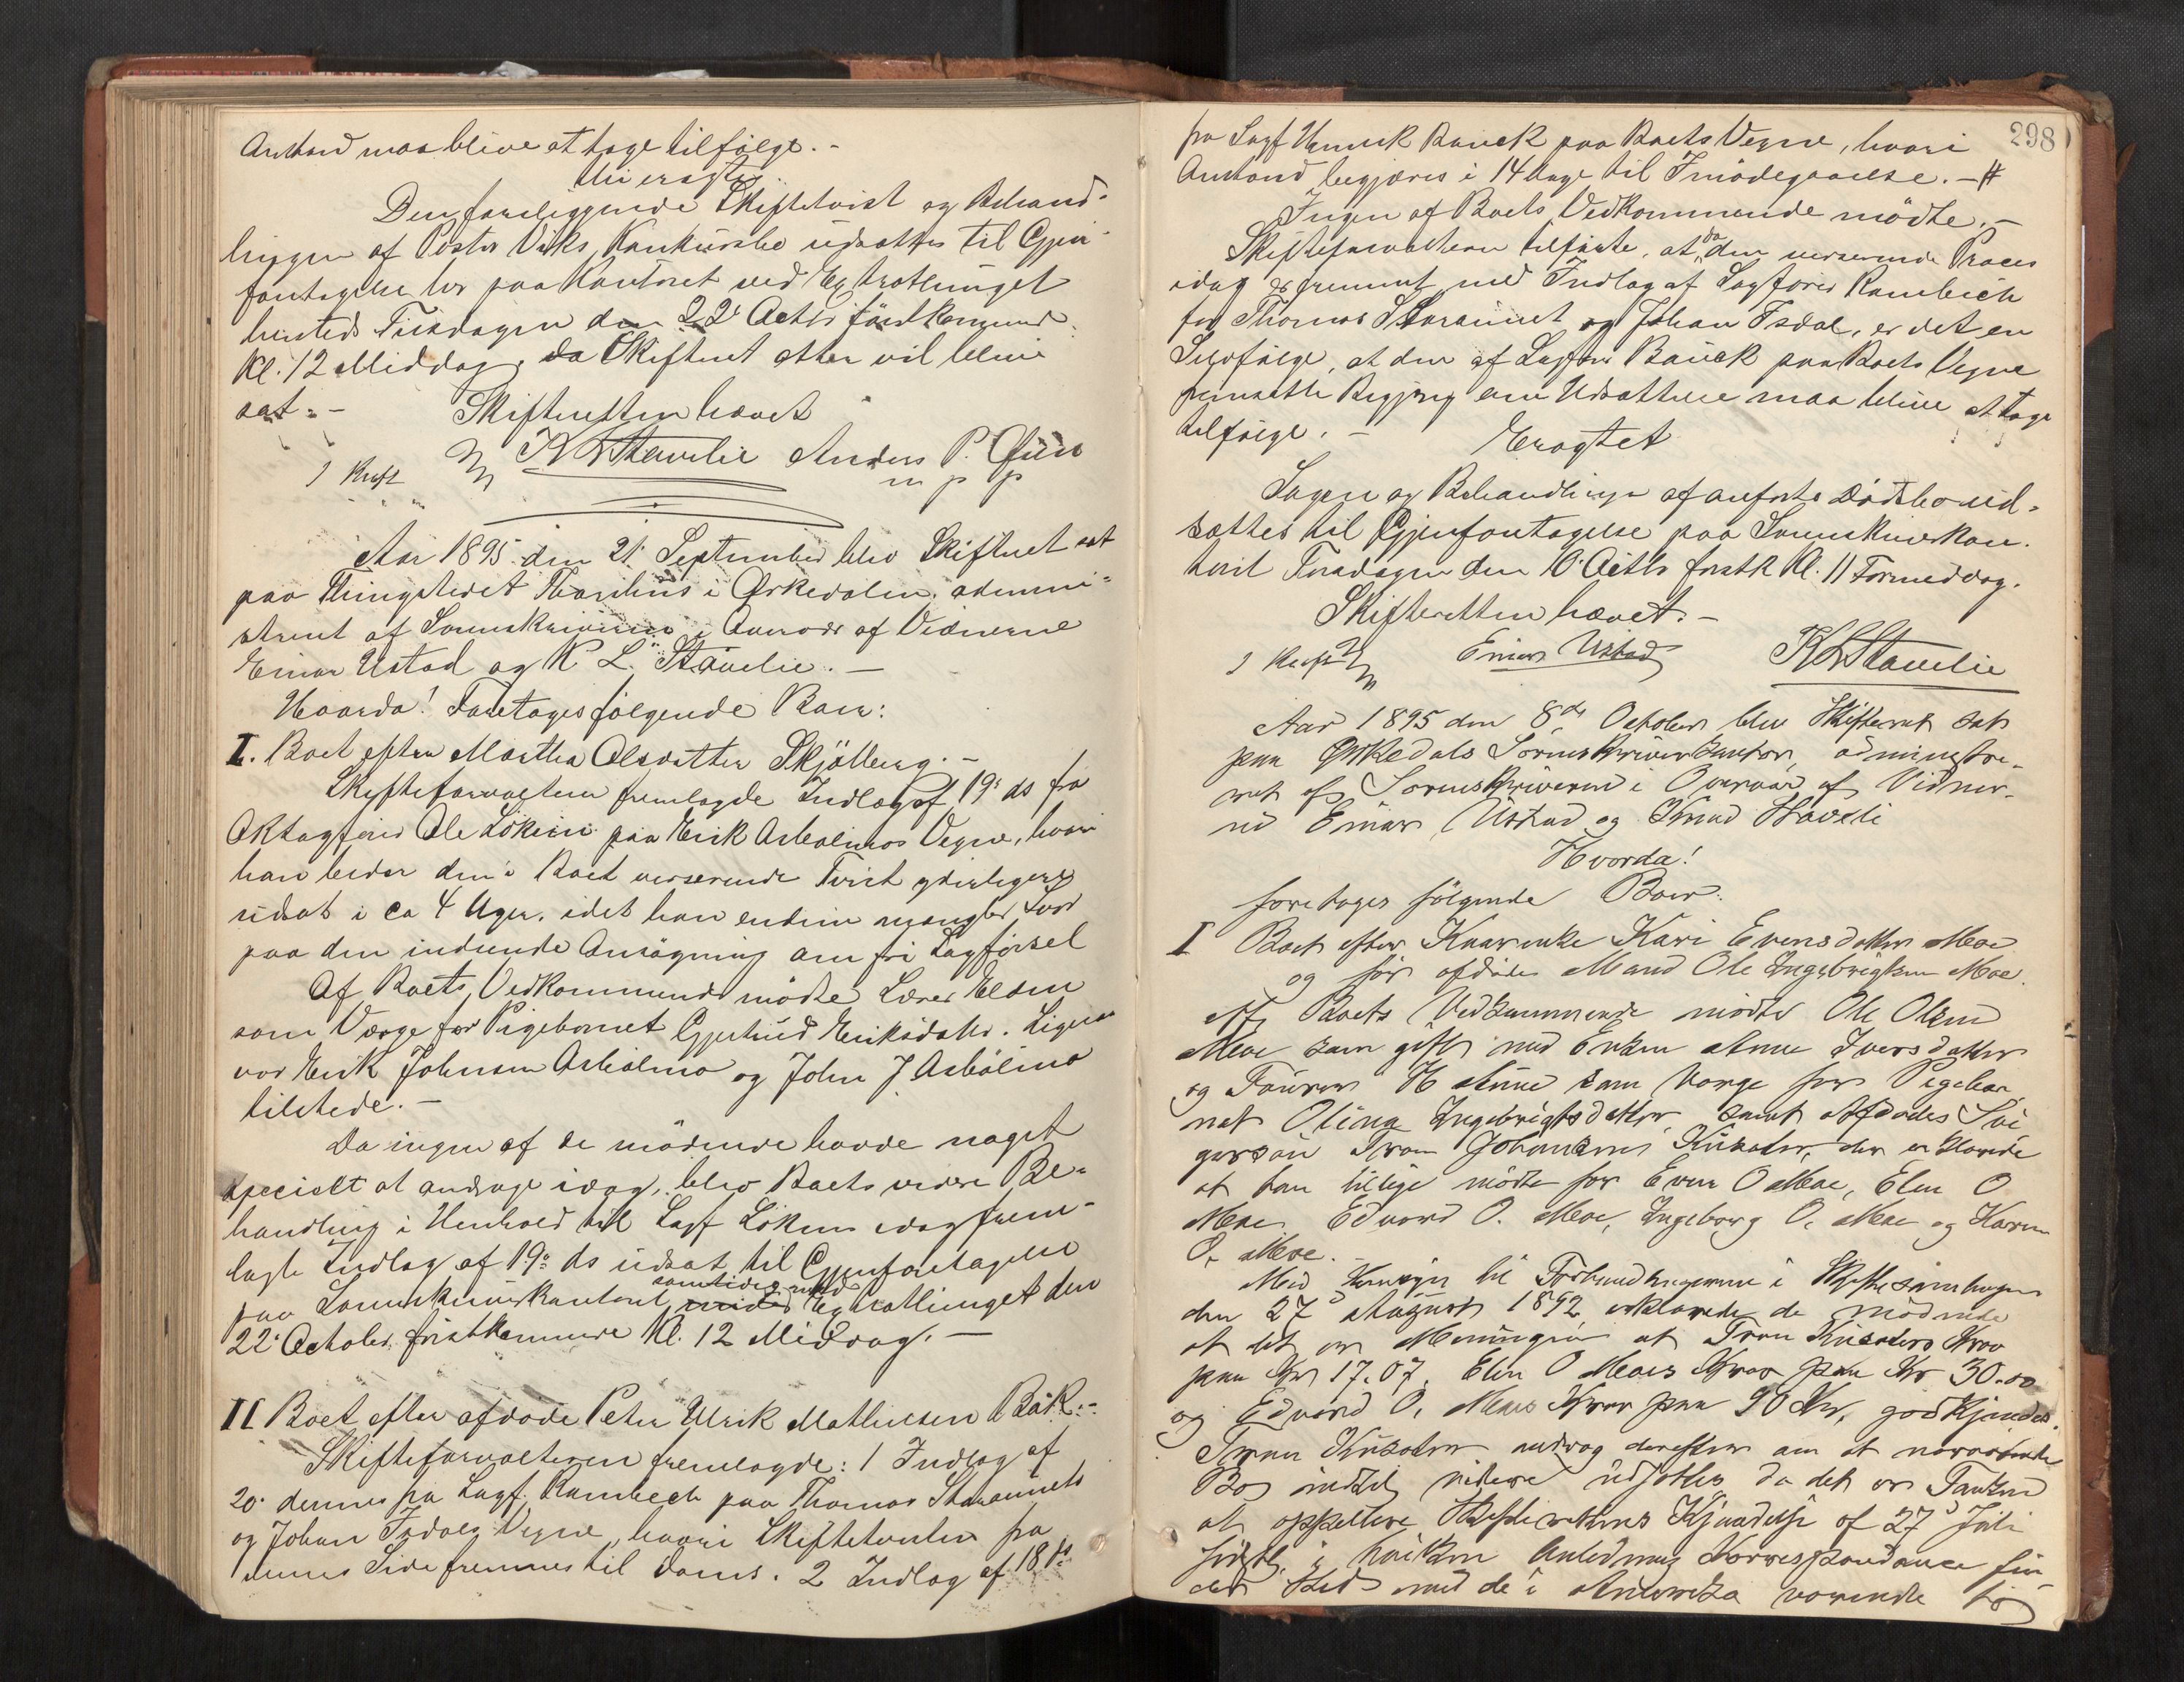 Anstand maa blive at tage tilfølge. -
Eragtet
Den foreliggende Skiftetvist og Behand-
lingen af Peder Viks Konkursbo udsættes til Gjen-
foretagelse her paa Kontoret ved Extrathinget
hersteds Tirsdagen den 22de Octbr førstkommende
Kl. 12 Middag, da Skifteret atter vil blive
sat. -
Skifteretten hævet
K L Stavelie Anders P.
m p p
1 Rmft
Aar 1895 den 21. September blev Skifteret sat
paa Thingstedet Bårdhus i Ørkedalen, admini-
streret af Sorenskriveren i Overvær af Vidnerne
Einar Ustad og K L. Stavelie. -
Hvorda! Foretages følgende Boer:
I. Boet efter Martha Olsdatter Skjølberg. -
Skifteforvalteren fremlagde Indlæg af 19de ds fra
Oktagfører Ole Løkens paa Erik Asbølmos Vegne, hvori
han beder den i Boet verserende Tvist yderligere
udsat i ca 4 Uger, idet han endnu mangler Svar
paa den indsendte Ansøgning om fri Sagførsel
Af Boets Vedkommende mødte Lærer Elsen
som Værge for Pigebarnet Gjertrud Eriksdatter. Ligesaa
var Erik Johnsen Asbølmo og John J Asbølmo
tilstede. -
Da ingen af de mødende havde noget
specielt at andrage idag, blev Boets videre Be-
handling i Henhold til Sagf Løkens idag frem-
lagte Indlæg af 19de ds udsat til Gjenforetagelse
samtidig med
paa Sorenskriverkontoret under Extrathinget den
22de October førstkommende Kl. 12 Middag. -
II Boet efter afdøde Peter Ulrik Mathiesen Båk. -
Skifteforvalteren fremlagde: 1 Indlæg af
20de dennes fra Sagf. Rambech paa Thomas Skaraunets
og Johan Isdals Vegne, hvori Skiftetvisten fra
dennes Side fremmes til Doms. 2 Indlæg af 18 ds
298
fra Sagf Henrik Bauck paa Boets Vegne, hvori
Anstand begjæres i 14 Dage til Imødegaaelse. - #
Ingen af Boets Vedkommende mødte. -
Skifteforvalteren tilførte, at da den verserende Proces
idag er fremmet med Indlæg af Sagfører Rambech
for Thomas Skaraunet og Johan Isdal, er det en
Selvfølge, at den af Sagfører Bauck paa Boets Vegne
fremsatte Begjæring om Udsættelse maa blive at tage
tilfølge. -
Eragtet
Sagen og Behandlingen af anførte Dødsbo ud-
sættes til Gjenforetagelse paa Sorenskriverkon-
toret Torsdagen den 10de Octbr førstk Kl. 11 Formiddag.
Skifteretten hævet. -
1 Rmft Einar Ustad K L Stavelie
Aar 1895 den 8de October blev Skifteret sat
paa Ørkedals Sorenskriverkontor, administre-
ret af Sorenskriveren i Overvær af Vidner-
ne Einar Ustad og Knud Staveli
Hvorda!
foretages følgende Boer:
I Boet efter Kaarenke Kari Evensdatter Moe
og før afdøde Mand Ole Ingebrigtsen Moe.
Af Boets Vedkommende mødte Ole Olsen
Moe som gift med Enken Anne Iversdatter
og H Aune som Værge for Pigebar
net Olina Ingebrigtsdatter samt Afdødes Svi
gersøn Tron Johansen Kusater, der erklærede
at han tillige mødte for Even O Moe, Elen O
Moe Edvard O. Moe, Ingeborg O. Moe og Karen
O. Moe. -
Med Hensyn til Forhandlingerne i Skiftesamlingen
den 27de August 1892 erklærede de mødende
at det er Meningen at Tron Kusaters Krav
paa Kr 17.07, Elen O Moes Krav paa Kr 30.00
og Edvard O. Moes Krav paa 90 Kr, godkjendes.
Tron Kusater androg derefter om at nærværende
Bo indtil videre udsættes, da det er Tanken
at appellere Skifterettens Kjendelse af 27de Juli
sidstl, i hvilken Anledning Korrespondance fin-
der Sted med de i Amerika værende